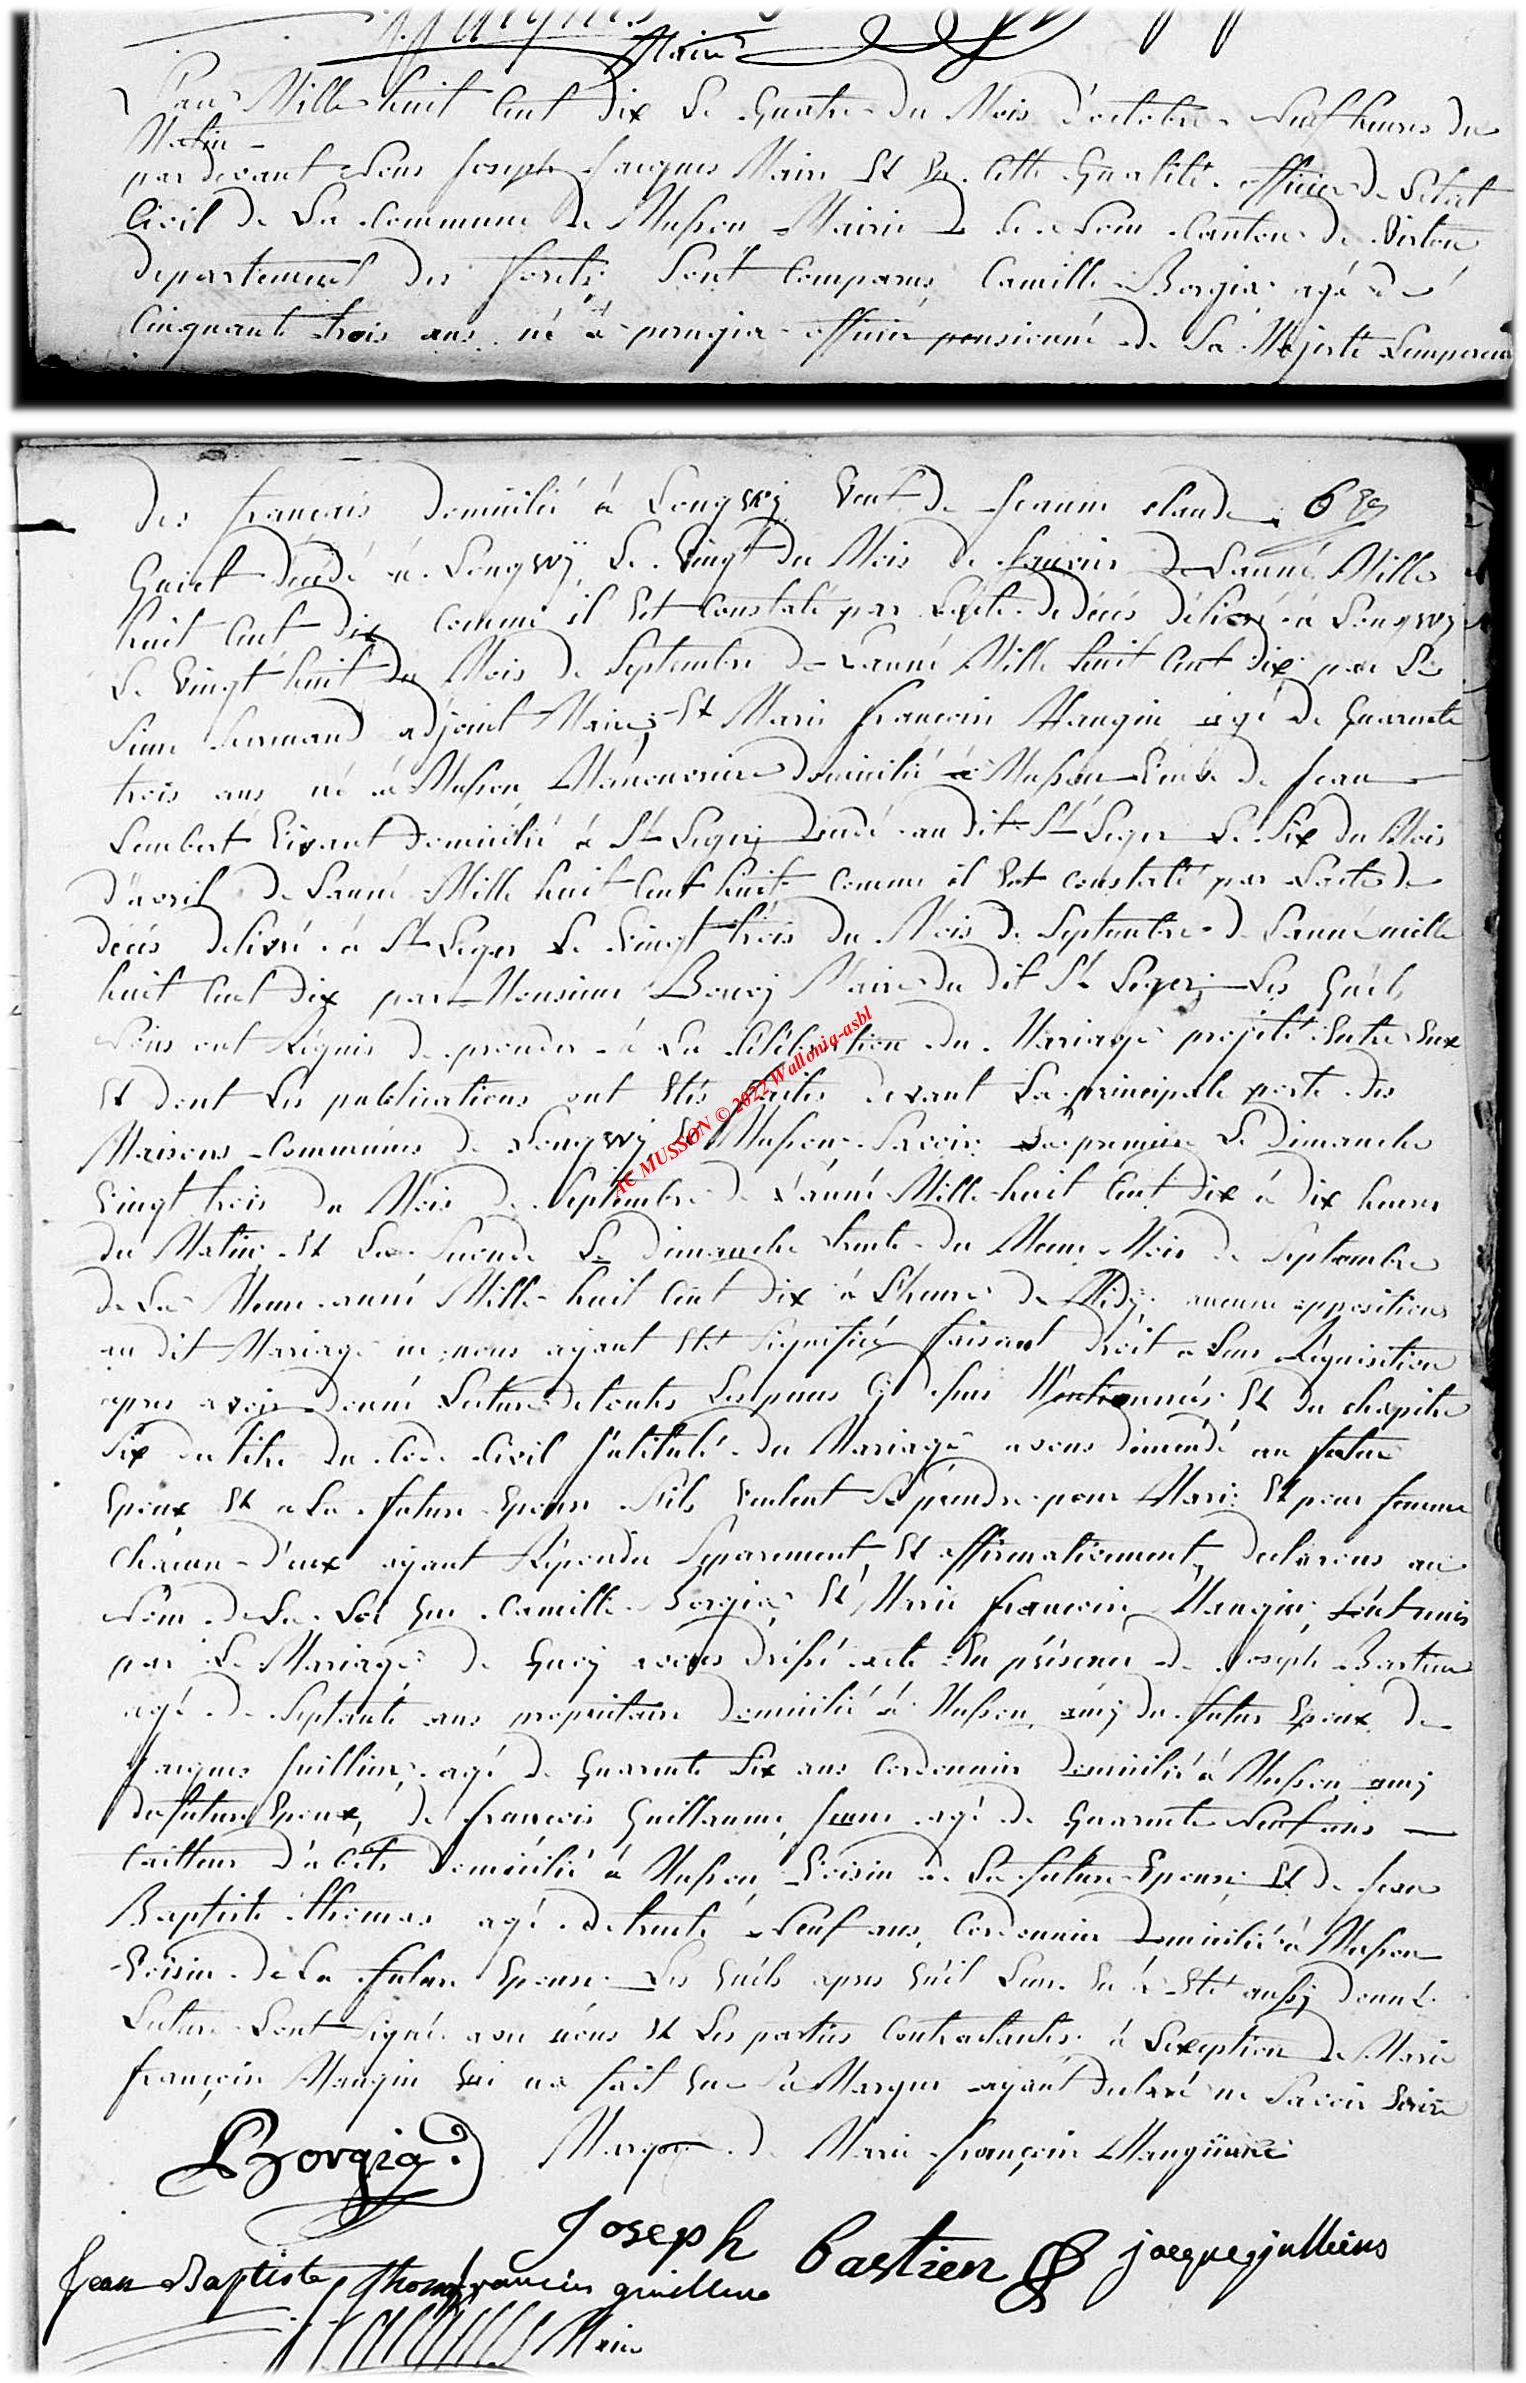 Maire
L'an Mille huit Cent dix Le Quatre du Mois d'octobre Neuf heures du
Matin
pardevant Nous Joseph Jacques Maire Et En Cette Qualité officier de Letat
Civil de La Commune de Musson Mairie de Ce Nom Canton de Virton
departement des forets Sont Comparus Camille Borgia agé de
Cinquante trois ans né a perugia officier pensionné de Sa Majesté Lempereur
des français domicilié à Longwy Veuf de Jeanne claude
décédé à Longwÿ Le Vingt du Mois de Janvier de Lanné Mille
huit Cent dix Comme il Est Constaté par Lacte de décés délivré à Longwy
Le Vingt huit du Mois de Septembre de Lanné Mille huit Cent dix par Le
Sieur adjoint Maire; Et Marie françoise Mangin agé de Quarente
trois ans né à Musson Manouvrière domicilié à Musson Veuve de Jean
Lambert Vivant domicilié à St Leger décédé au dit St Leger Le Six du Mois
d'avril de Lanné Mille huit Cent huit comme il Est constaté par Lacte de
décés delivré à St Leger Le Vingt trois du Mois de Septembre de Lanné mille
huit Cent dix par Monsieur Maire du dit St Leger; Les Quels
Nous ont Réquis de proceder à La Célébration du Mariage projeté Entre Eux
Et dont Les publications ont Etés faites devant La principale porte des
Maisons Communes de Longwy Et Musson Savoir La premiere Le dimanche
Vingt trois du Mois de Septembre de L'anné Mille huit Cent dix à dix heures
du Matin Et La Seconde Le dimanche trente du Meme Mois de Septembre
de La Meme anné Mille huit Cent dix à L'heure de Midÿ; aucune opposition
au dit Mariage ne nous ayant Eté Signifiée faisant droit a Leur Réquisition
apres avoir donné Lecture de toutes Les pieces Cy dessus Mentionnés Et du chapitre
Six du titre du Code Civil Intitulé du Mariage avons demandé au futur
Epoux Et a La future Epouse S'ils Veulent Se prendre pour Mari Et pour femme
Chacun d'eux ayant Répondu Separement Et affirmativement, declarons au
Nom de La Loi Que Camille Borgia Et Marie françoise Mangin, Sont unis
par Le Mariage de Quoy avons dréssé acte En présence de Joseph Bastien
agé de Septante ans propriétaire domicilié à Musson amy du futur Epoux de
Jacques Juillien agé de Quarente Six ans Cordonnier domicilié à Musson amy
du futur Epoux, de francois Guillaume agé de Quarente Neuf ans
domicilié à Musson Voisin de La future Epouse Et de Jean
Baptiste thomas agé de trente Neuf ans, Cordonnier domicilié à Musson
Voisin de La future Epouse Les Quels apres Qu'il Leur En a Eté aussy donné
Lecture Sont Signés avec nous Et Les parties Contractantes à Lexception de Marie
françoise Mangin Qui na fait Que Sa Marque ayant declaré ne Savoir Ecrire
Borgia Marque de Marie françoise
Joseph bastien jacque jullieus
Jean Baptiste thomas
Maire
AC MUSSON © 2022 Wallonia-asbl